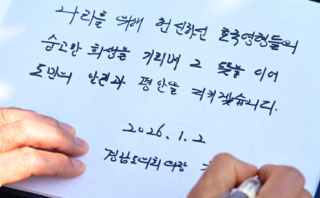 나라를 위해 헌신하신 호국영령들의
숭고한 희생을 기리며 그 뜻을 이어
도민의 안전과 평안을 지키겠습니다.
2026. 1. 2
경남도의회의장